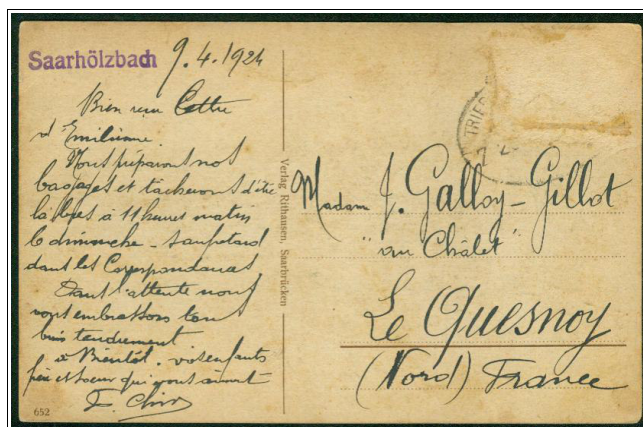 Saarhölzbach
9.4.1924
Bien reçu Lettre
d'Emilienne.
Nous préparons nos
bagages et tacherons d'être
là à 11 heures matin
le dimanche - sauf retard
dans les Correspondances
Dans l'attente nous
vous embrassons tous
bien tendrement
à Bientôt. vos enfants
et soeur qui vous aiment
652
Verlag Rithausen, Saarbrücken
TRIER
Madam J. Galloy-Gillot
"au Châlet"
Le Quesnoy
(Nord) France